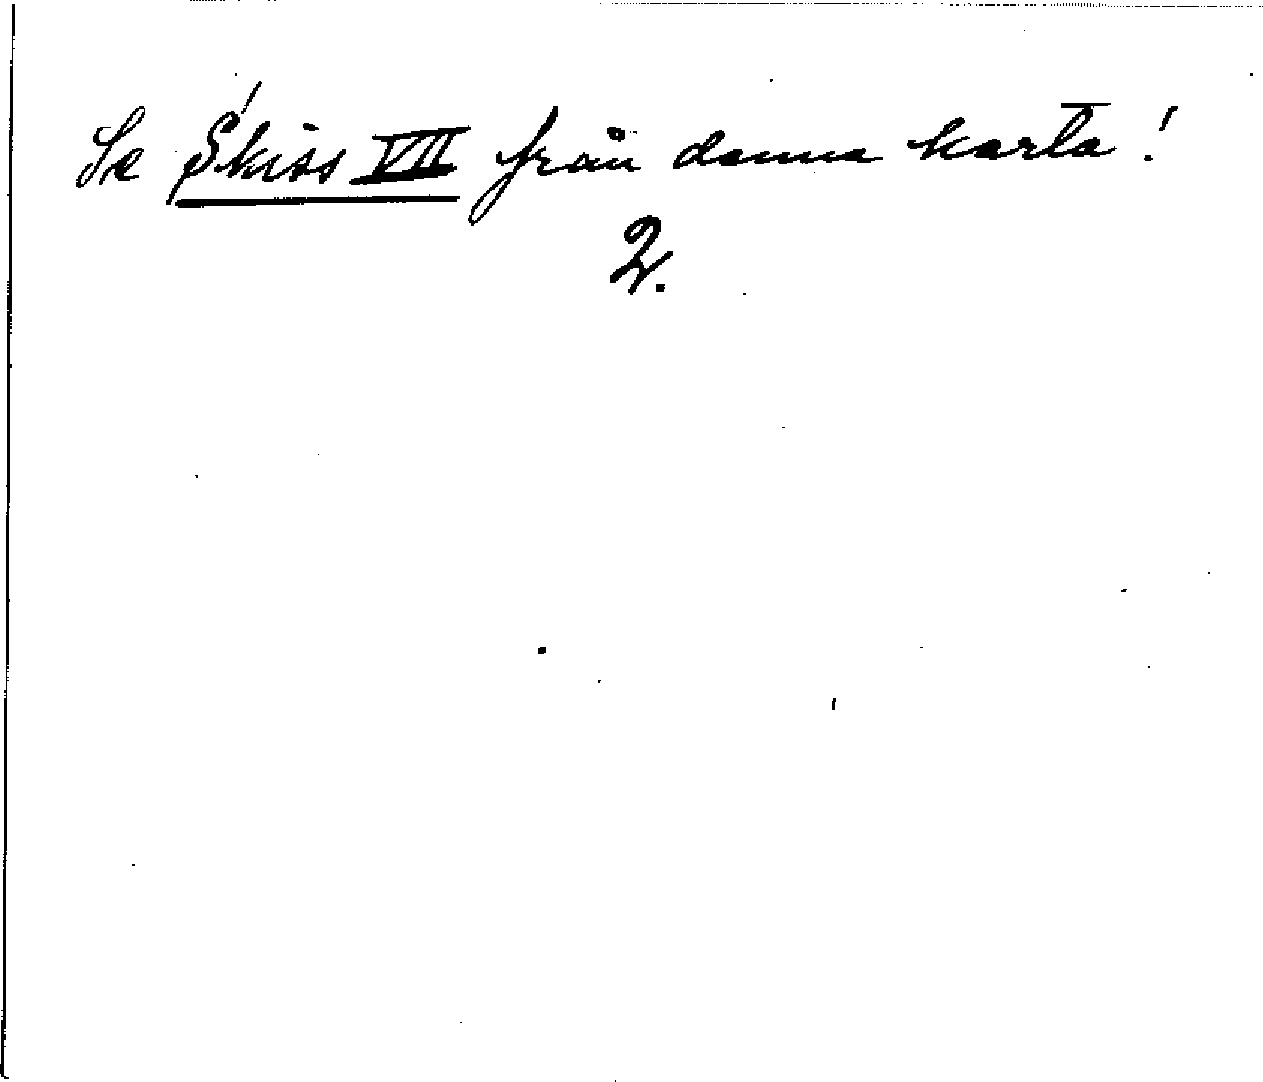 Se Skiss VII från denna karta!
2.